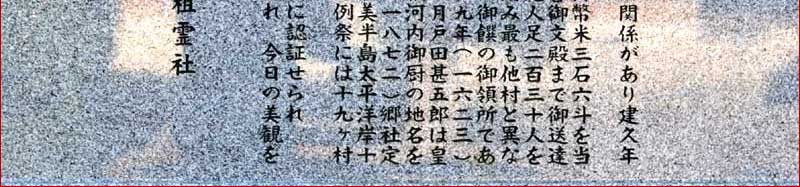 関係があり建久年
幣米三石六斗を当
御文殿まで御送達
人足二百三十人を
み最も他村と異な
御饌の御領所であ
九年(一六二三)
月戸田甚五郎は皇
河内御厨の地名を
一八七二)郷社定
美半島太平洋岸十
例祭には十九ヶ村
に認証せられ
れ 今日の美観を
祖霊社